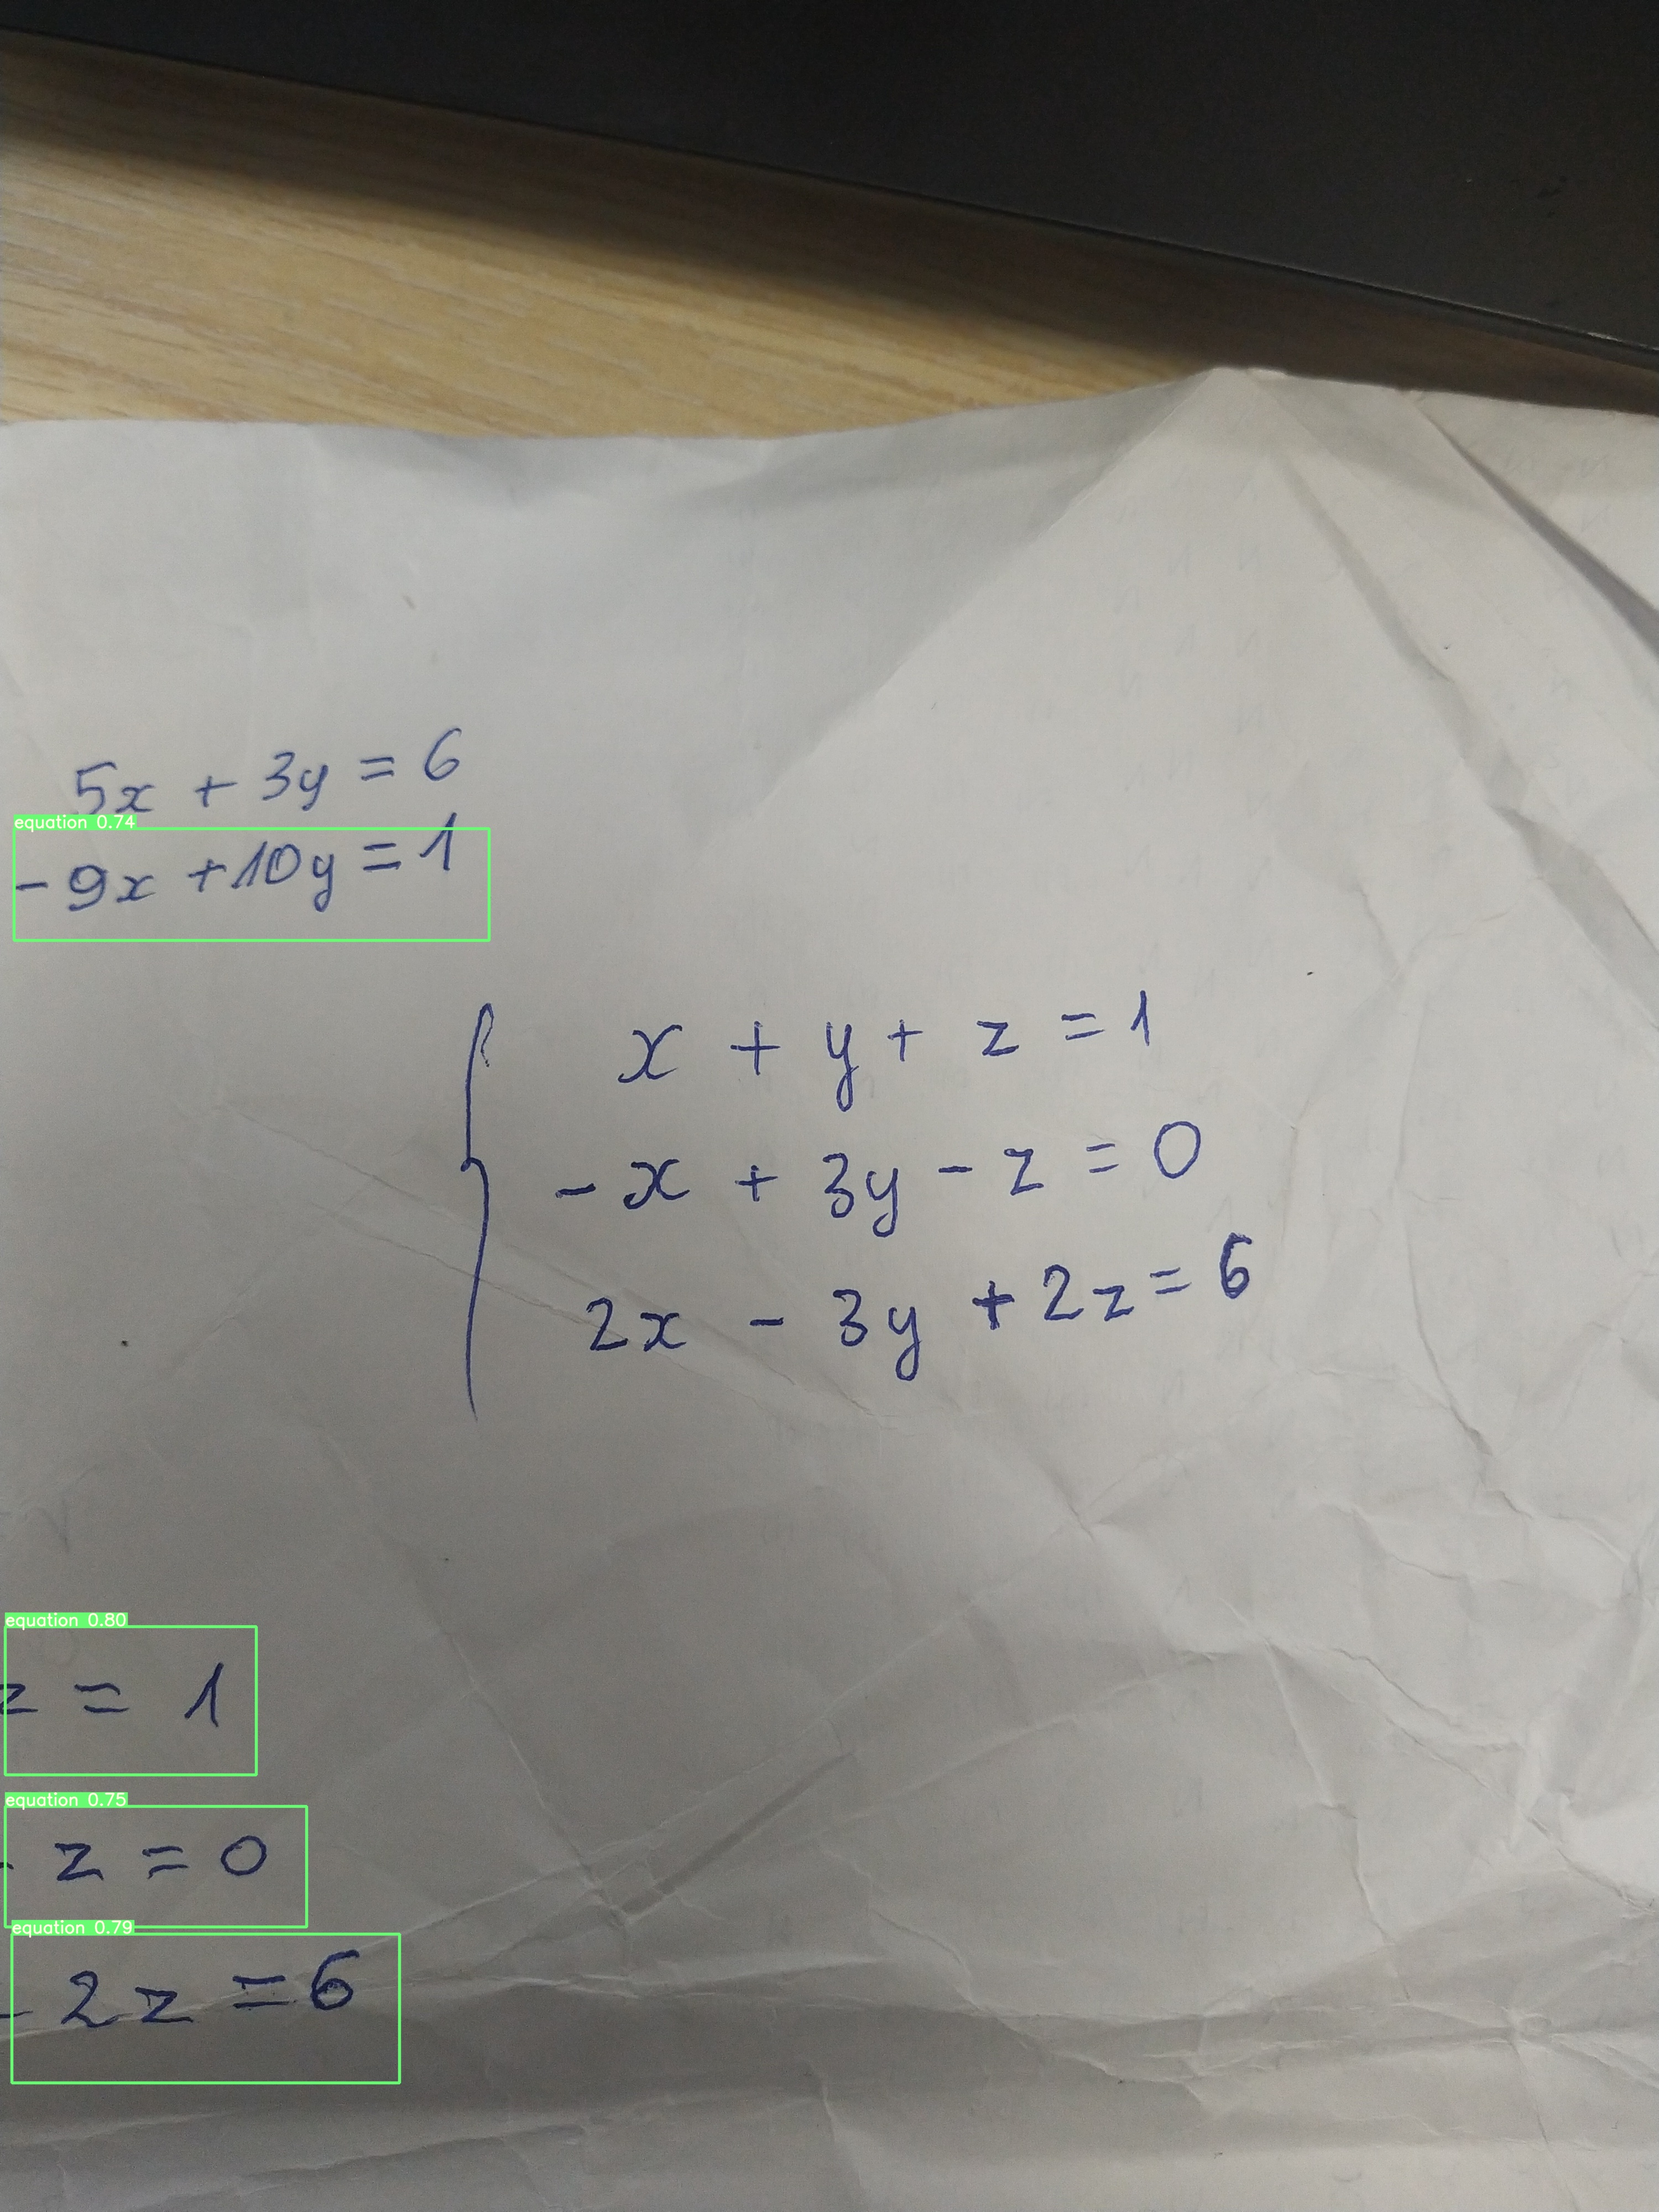 5x + 3y = 6
equation 0.74
- 9x + 10y = 1
x + y + z = 1
- x + 3y - z = 0
2x - 3y + 2z = 6
equation 0.80
z = 1
equation 0.75
- z = 0
equation 0.79
- 2z = 6